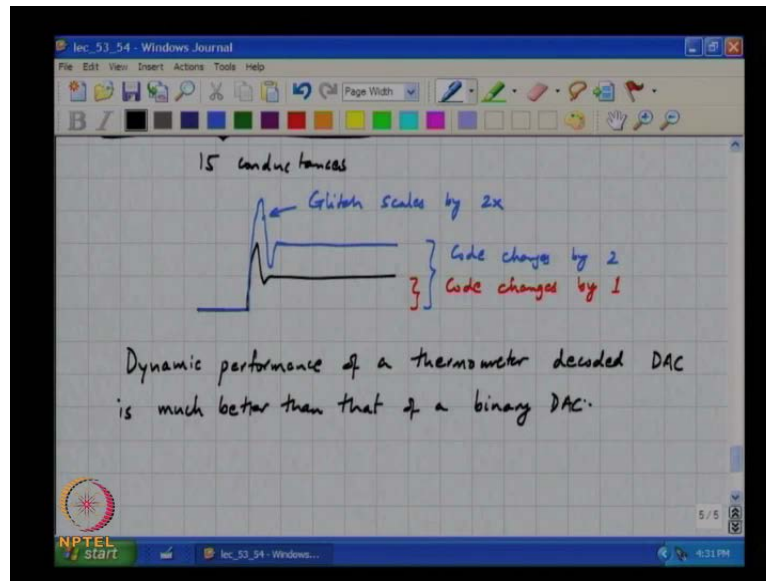 lec_53_54 - Windows Journal
File Edit View Insert Actions Tools Help
Page Width
B I
15 conductances
Glitch scales by 2x
Code changes by 2
Code changes by 1
Dynamic performance of a thermometer decoded DAC
is much better than that of a binary DAC.
5/5
NPTEL
start lec_53_54 - Windows... 4:31 PM